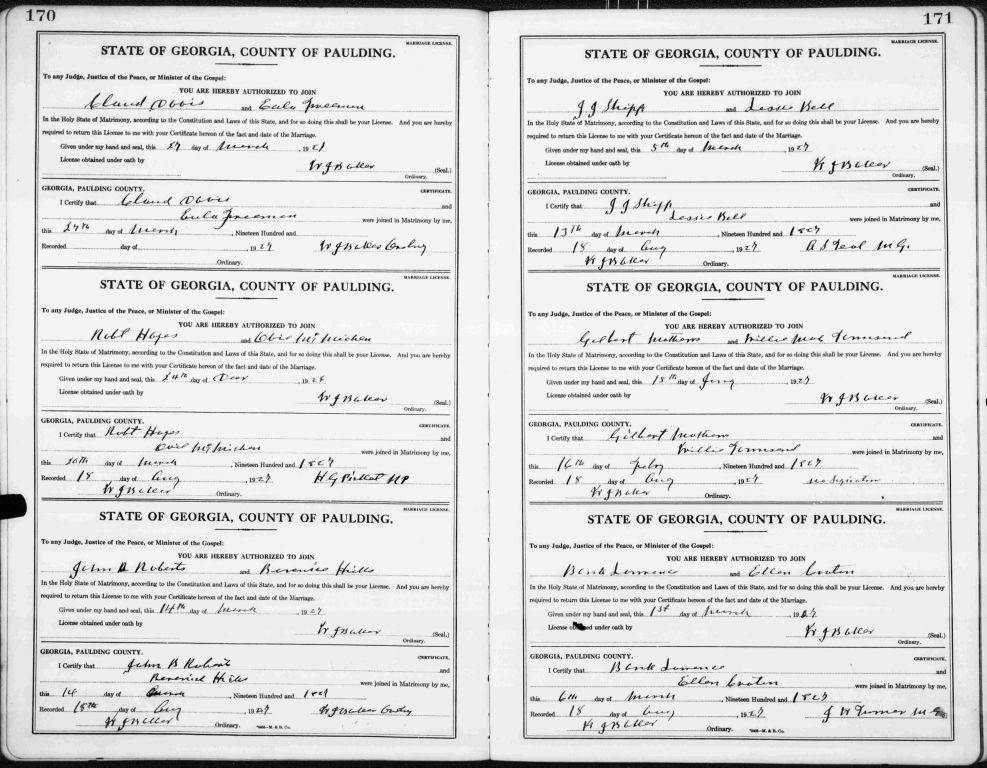 170
MARRIAGE LICENSE.
STATE OF GEORGIA, COUNTY OF PAULDING.
To any Judge, Justice of the Peace, or Minister of the Gospel:
YOU ARE HEREBY AUTHORIZED TO JOIN
Claud and Eula Freeman
In the Holy State of Matrimony, according to the Constitution and Laws of this State, and for so doing this shall be your License. And you are hereby
required to return this License to me with your Certificate hereon of the fact and date of the Marriage.
Given under my hand and seal, this 27 day of March, 1927
License obtained under oath by
W J Baker (Seal.)
Ordinary.
GEORGIA, PAULDING COUNTY. CERTIFICATE.
I Certify that Claud and
Eula Freeman were joined in Matrimony by me,
this 27th day of March, Nineteen Hundred and
Recorded day of, 1927 W J Baker Ordny
Ordinary.
MARRIAGE LICENSE.
STATE OF GEORGIA, COUNTY OF PAULDING.
To any Judge, Justice of the Peace, or Minister of the Gospel:
YOU ARE HEREBY AUTHORIZED TO JOIN
Robt Hayes and McMichen
In the Holy State of Matrimony, according to the Constitution and Laws of this State, and for so doing this shall be your License. And you are hereby
required to return this License to me with your Certificate hereon of the fact and date of the Marriage.
Given under my hand and seal, this 24th day of, 192
License obtained under oath by
W J Baker (Seal.)
Ordinary.
GEORGIA, PAULDING COUNTY. CERTIFICATE.
I Certify that Robt Hayes and
McMichen were joined in Matrimony by me,
this day of March, Nineteen Hundred and 1927
Recorded 18 day of Aug, 1927 H G
W J Baker Ordinary.
MARRIAGE LICENSE.
STATE OF GEORGIA, COUNTY OF PAULDING.
To any Judge, Justice of the Peace, or Minister of the Gospel:
YOU ARE HEREBY AUTHORIZED TO JOIN
John B Roberts and Berenice Hicks
In the Holy State of Matrimony, according to the Constitution and Laws of this State, and for so doing this shall be your License. And you are hereby
required to return this License to me with your Certificate hereon of the fact and date of the Marriage.
Given under my hand and seal, this 14th day of March, 1927
License obtained under oath by
W J Baker (Seal.)
Ordinary.
GEORGIA, PAULDING COUNTY. CERTIFICATE.
I Certify that John B Roberts and
Hicks were joined in Matrimony by me,
this 14 day of March, Nineteen Hundred and
Recorded 18th day of Aug, 1927 W J Baker Ordny
W J Baker Ordinary. M. & B. Co.
171
MARRIAGE LICENSE.
STATE OF GEORGIA, COUNTY OF PAULDING.
To any Judge, Justice of the Peace, or Minister of the Gospel:
YOU ARE HEREBY AUTHORIZED TO JOIN
J J Shipp and Lessie Bell
In the Holy State of Matrimony, according to the Constitution and Laws of this State, and for so doing this shall be your License. And you are hereby
required to return this License to me with your Certificate hereon of the fact and date of the Marriage.
Given under my hand and seal, this 5th day of March, 1927
License obtained under oath by
W J Baker (Seal.)
Ordinary.
GEORGIA, PAULDING COUNTY. CERTIFICATE.
I Certify that J J Shipp and
Lessie Bell were joined in Matrimony by me,
this 13th day of March, Nineteen Hundred and 1927
Recorded 18 day of Aug, 1927 A S Teal M.G.
W J Baker Ordinary.
MARRIAGE LICENSE.
STATE OF GEORGIA, COUNTY OF PAULDING.
To any Judge, Justice of the Peace, or Minister of the Gospel:
YOU ARE HEREBY AUTHORIZED TO JOIN
Gilbert Mathews and Willie Mae Townsend
In the Holy State of Matrimony, according to the Constitution and Laws of this State, and for so doing this shall be your License. And you are hereby
required to return this License to me with your Certificate hereon of the fact and date of the Marriage.
Given under my hand and seal, this 15th day of, 1927
License obtained under oath by
W J Baker (Seal.)
Ordinary.
GEORGIA, PAULDING COUNTY. CERTIFICATE.
I Certify that Gilbert Mathews and
Willie Townsend were joined in Matrimony by me,
this 16th day of, Nineteen Hundred and 1927
Recorded 18 day of Aug, 1927 no signature
W J Baker Ordinary.
MARRIAGE LICENSE.
STATE OF GEORGIA, COUNTY OF PAULDING.
To any Judge, Justice of the Peace, or Minister of the Gospel:
YOU ARE HEREBY AUTHORIZED TO JOIN
Bank Lawrence and Ellen
In the Holy State of Matrimony, according to the Constitution and Laws of this State, and for so doing this shall be your License. And you are hereby
required to return this License to me with your Certificate hereon of the fact and date of the Marriage.
Given under my hand and seal, this 1st day of March, 1927
License obtained under oath by
W J Baker (Seal.)
Ordinary.
GEORGIA, PAULDING COUNTY. CERTIFICATE.
I Certify that Bank Lawrence and
Ellen were joined in Matrimony by me,
this 6th day of March, Nineteen Hundred and 1927
Recorded 18 day of Aug, 1927 J W Turner M G
W J Baker Ordinary. M. & B. Co.